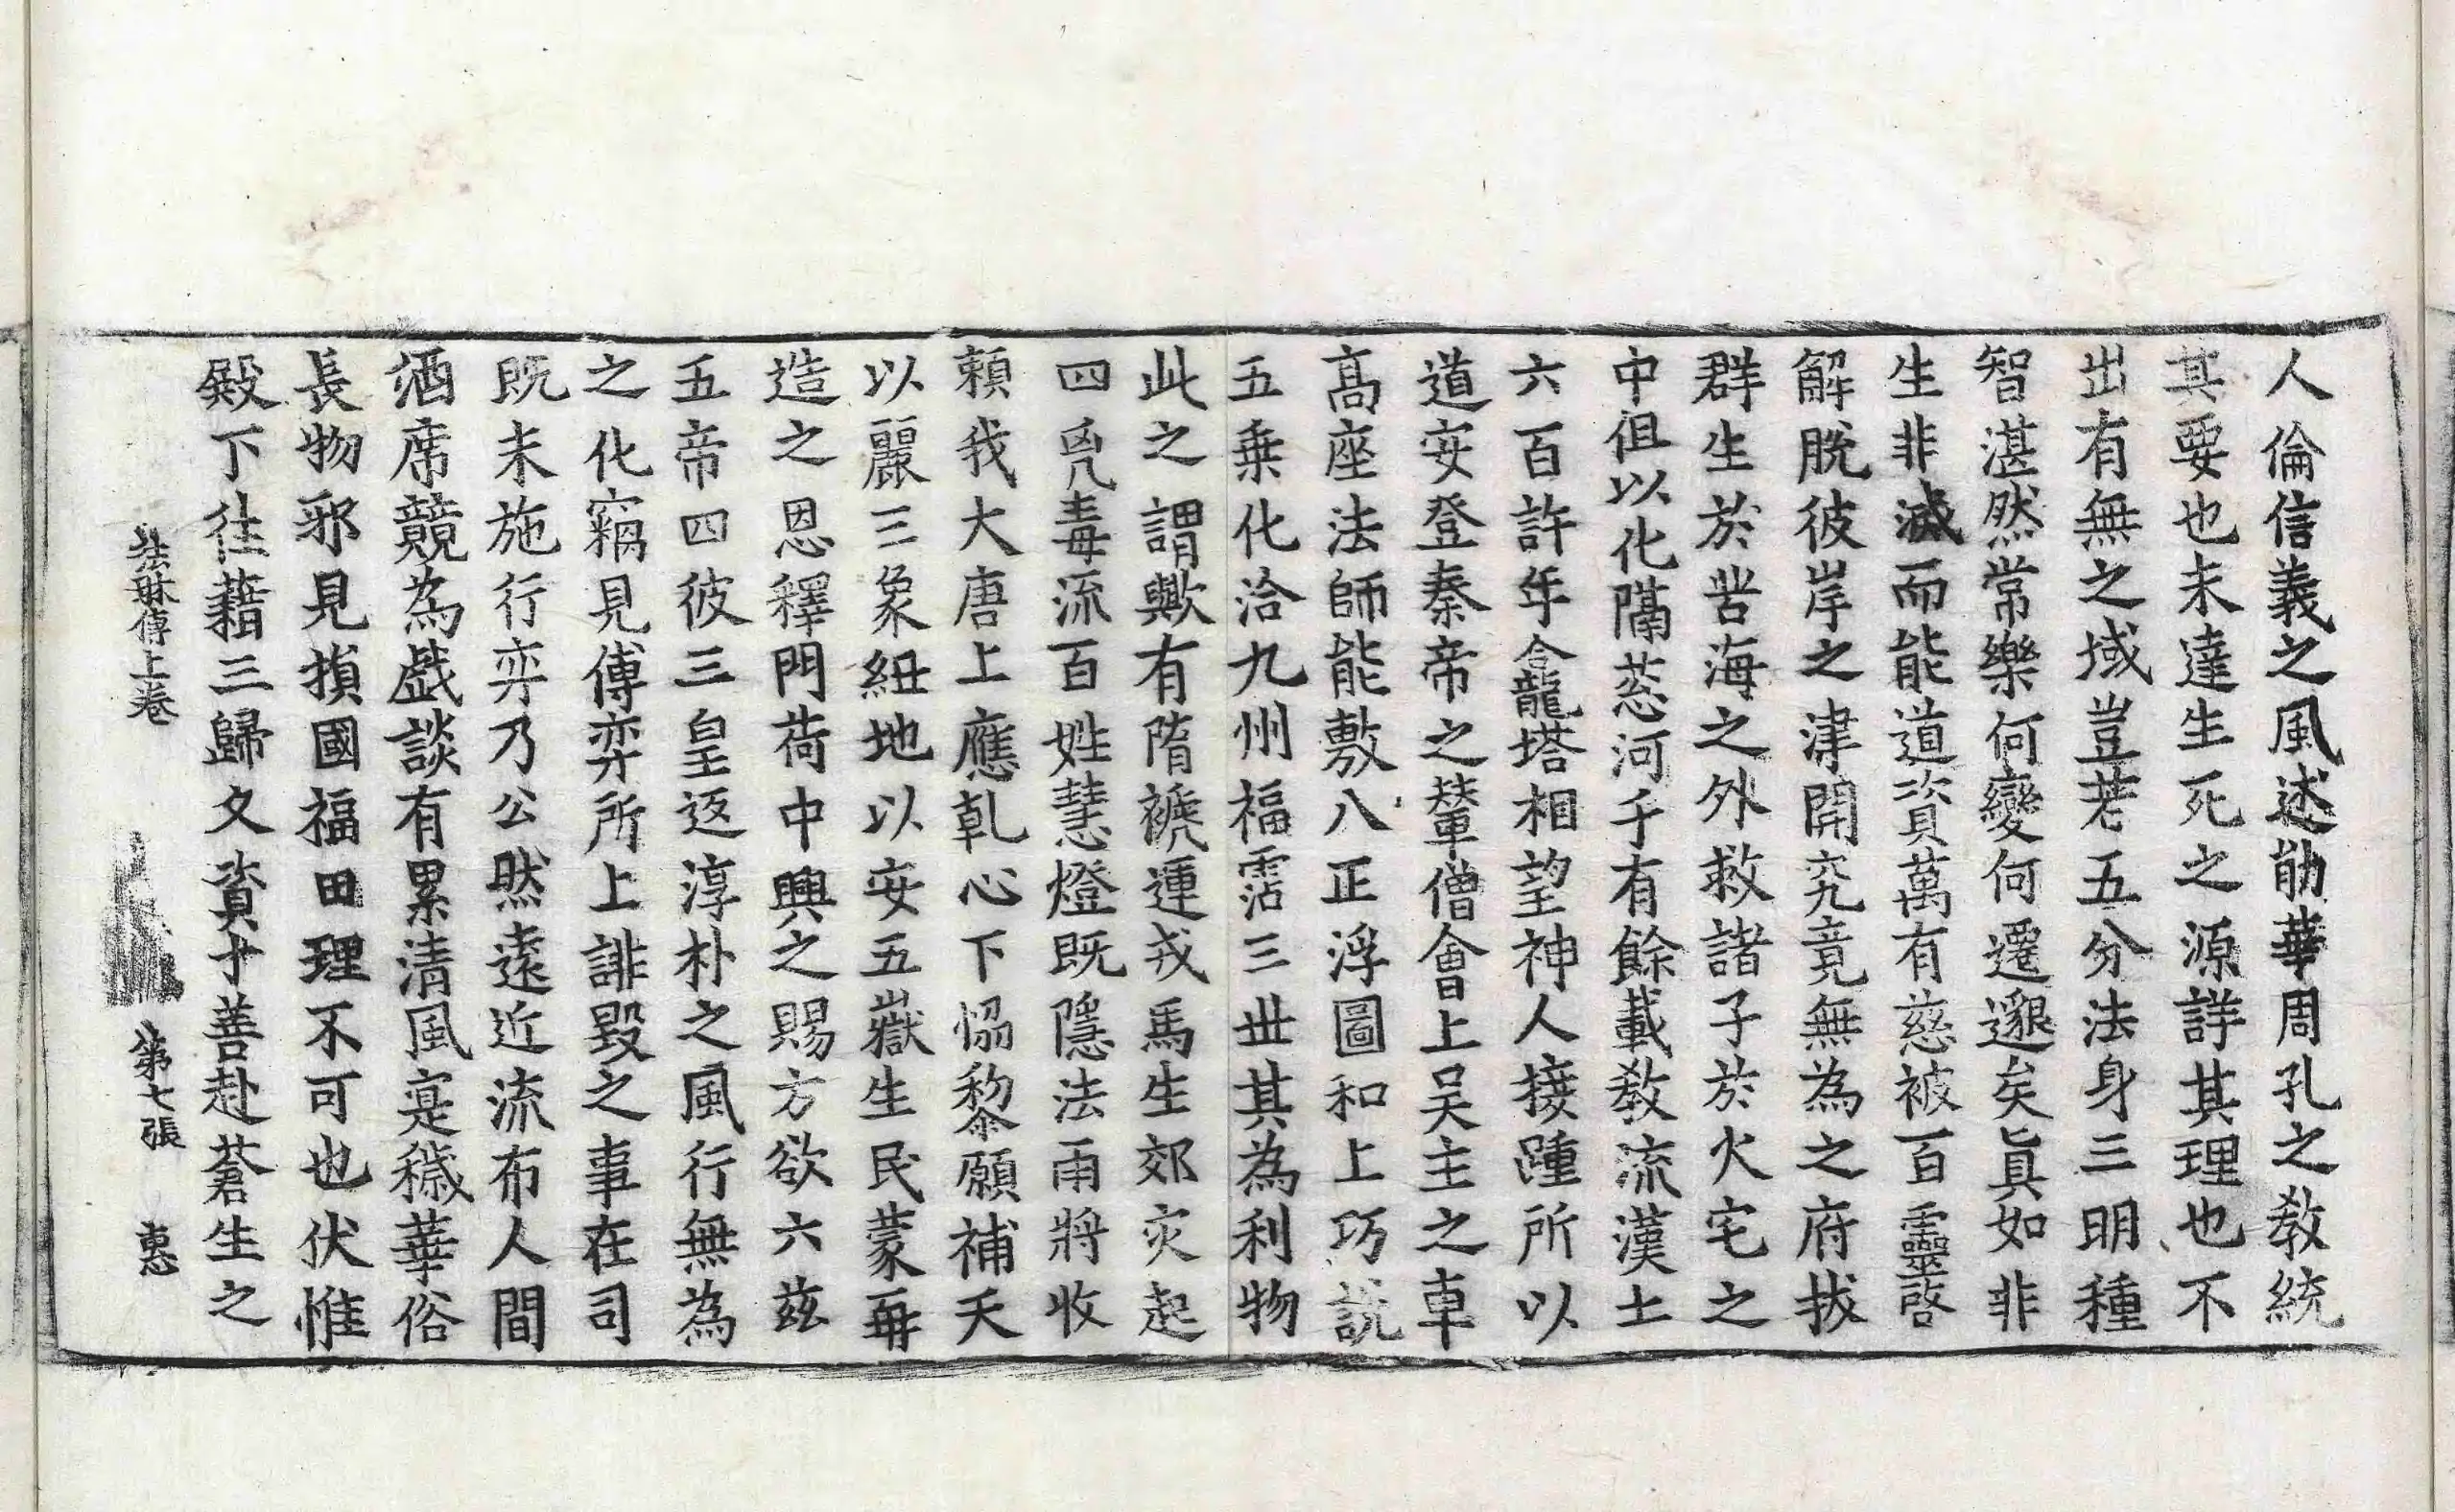 人倫信義之風述勛華周孔之教統
其要也未達生死之源詳其理也不
出有無之域豈若五分法身三明種
智湛然常樂何變何遷邈矣眞如非
生非滅而能道資萬有慈被百靈啓
解脫彼岸之津開究竟無為之府拔
群生於苦海之外救諸子於火宅之
中但以化隔葱河千有餘載教流漢土
六百許年龕塔相望神人接踵所以
道安登秦帝之輦僧會上吳主之車
高座法師能敷八正浮圖和上巧説
五乗化洽九州福霑三世其為利物
此之謂歟有隋褫運戎馬生郊灾起
四兇毒流百姓慧燈既隱法雨將收
頼我大唐上應乹心下恊黎願補天
以麗三象紐地以安五嶽生民蒙再
造之恩釋門荷中興之賜方欲六茲
五帝四彼三皇返淳朴之風行無為
之化竊見傅弈所上誹毀之事在司
既未施行弈乃公然遠近流布人間
酒席競為戲談有累清風寔穢華俗
長物邪見損國福田理不可也伏惟
殿下往藉三歸久資十善赴蒼生之
法琳傳上卷 第七張 惠